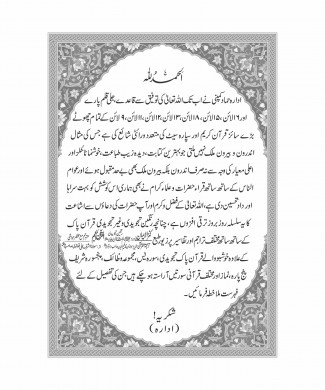 الحمد للہ
ادارہ حماد کمپنی نے اب تک اللہ تعالیٰ کی توفیق سے قاعدے، جلی قلم پارے
اور ۹ لائن، ۱۵ لائن، ۱۸ لائن، ۱۳ لائن، ۱۲ لائن، ۱۱ لائن، ۹ لائن کے تمام چھوٹے
بڑے سائز قرآن کریم اور سپارہ سیٹ کی متعدد ورائٹی شائع کی ہے جس کی مثال
اندرون و بیرون ملک نہیں ملتی جو بہترین کتابت، دیدہ زیب طباعت، خوشنما ٹائٹلز اور
اعلیٰ معیار کی وجہ سے نہ صرف اندرون بلکہ بیرون ملک بھی بے حد مقبول ہوئے اور عوام
الناس کے ساتھ ساتھ قراء حضرات و علماء کرام نے بھی ہماری اس کوشش کو بہت سراہا
اور داد تحسین دی ہے، اللہ تعالیٰ کے فضل و کرم اور آپ حضرات کی دعاؤں سے اشاعت
کا یہ سلسلہ روز بروز ترقی افزوں ہے، چنانچہ رنگین تجویدی وغیر تجویدی قرآن پاک
کے ساتھ ساتھ مختلف تراجم اور تفاسیر پر زیور طبع
کے علاوہ خوشبو والے قرآن پاک تجویدی، سورہ یٰس، مجموعہ وظائف، پنجسورہ شریف
پنج پارہ، نماز اور مختلف قرآنی سورتیں آراستہ ہو چکے ہیں جن کی تفصیل کے لئے
فہرست ملاحظہ فرمائیں۔
شکریہ!
(ادارہ)